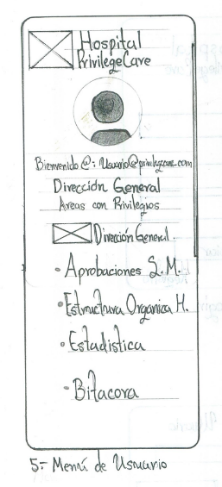 Hospital
PrivilegeCare
Bienvenido @: Usuario@privilegecare.com
Dirección General
Areas con Privilegios
Dirección General
• Aprobaciones S.M.
• Estructura Organica H.
• Estadistica
• Bitacora
5.- Menú de Usuario